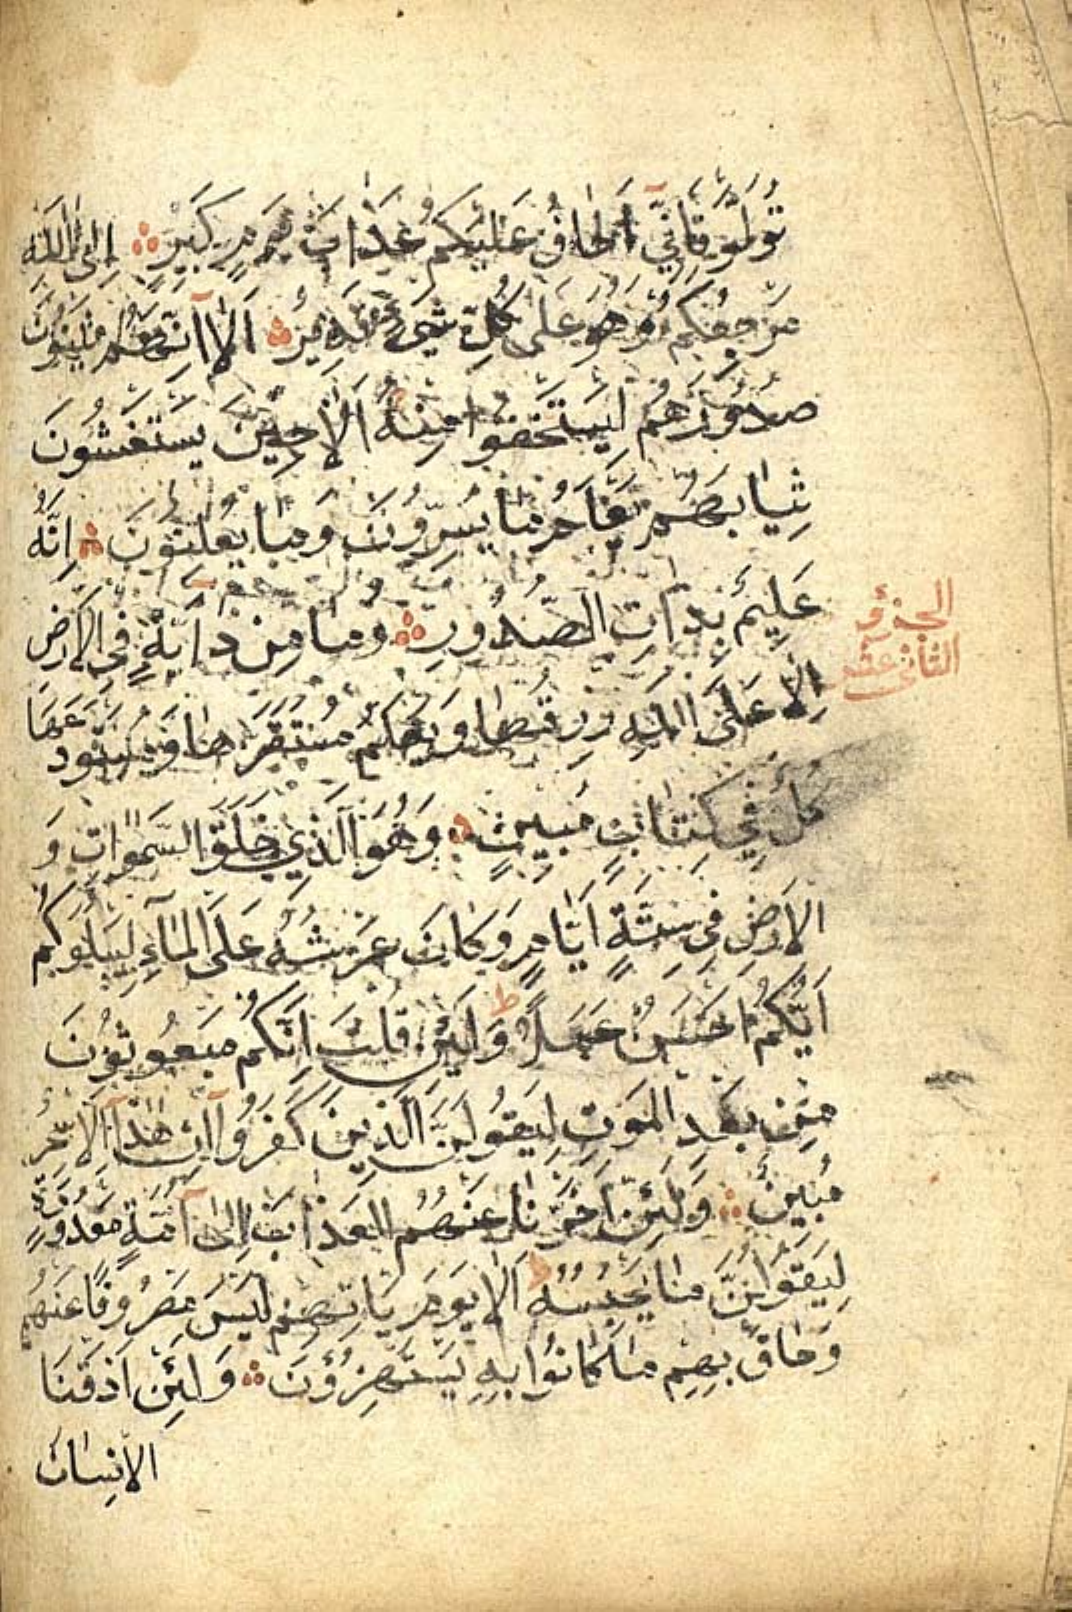 تُوَلَّوْ فَاِنّٖيٓ اَخَافُ عَلَيْكُمْ عَذَابَ يَوْمٍ كَبٖيرٍ اِلَى اللّٰهِ
مَرْجِعُكُمْ وَهُوَ عَلٰى كُلِّ شَيْءٍ قَدٖيرٌ اَلَآ اِنَّهُمْ يَثْنُونَ
صُدُورَهُمْ لِيَسْتَخْفُوا مِنْهُ اَلَا حٖينَ يَسْتَغْشُونَ
ثِيَابَهُمْ يَعْلَمُ مَا يُسِرُّونَ وَمَا يُعْلِنُونَ اِنَّهُ
عَلٖيمٌ بِذَاتِ الصُّدُورِ وَمَا مِنْ دَآبَّةٍ فِي الْاَرْضِ
الجزؤ
الثانى عشر
اِلَّا عَلَى اللّٰهِ رِزْقُهَا وَيَعْلَمُ مُسْتَقَرَّهَا وَمُسْتَوْدَعَهَا
كُلٌّ فٖي كِتَابٍ مُبٖينٍ وَهُوَ الَّذٖي خَلَقَ السَّمٰوَاتِ وَ
الْاَرْضَ فٖي سِتَّةِ اَيَّامٍ وَكَانَ عَرْشُهُ عَلَى الْمَآءِ لِيَبْلُوَكُمْ
اَيُّكُمْ اَحْسَنُ عَمَلًا ط وَلَئِنْ قُلْتَ اِنَّكُمْ مَبْعُوثُونَ
مِنْ بَعْدِ الْمَوْتِ لَيَقُولَنَّ الَّذٖينَ كَفَرُوٓا اِنْ هٰذَآ اِلَّا سِحْرٌ
مُبٖينٌ وَلَئِنْ اَخَّرْنَا عَنْهُمُ الْعَذَابَ اِلٰٓى اُمَّةٍ مَعْدُودَةٍ
لَيَقُولُنَّ مَا يَحْبِسُهُ اَلَا يَوْمَ يَاْتٖيهِمْ لَيْسَ مَصْرُوفًا عَنْهُمْ
وَحَاقَ بِهِمْ مَا كَانُوا بِهٖ يَسْتَهْزِؤُنَ وَلَئِنْ اَذَقْنَا
الْاِنْسَانَ